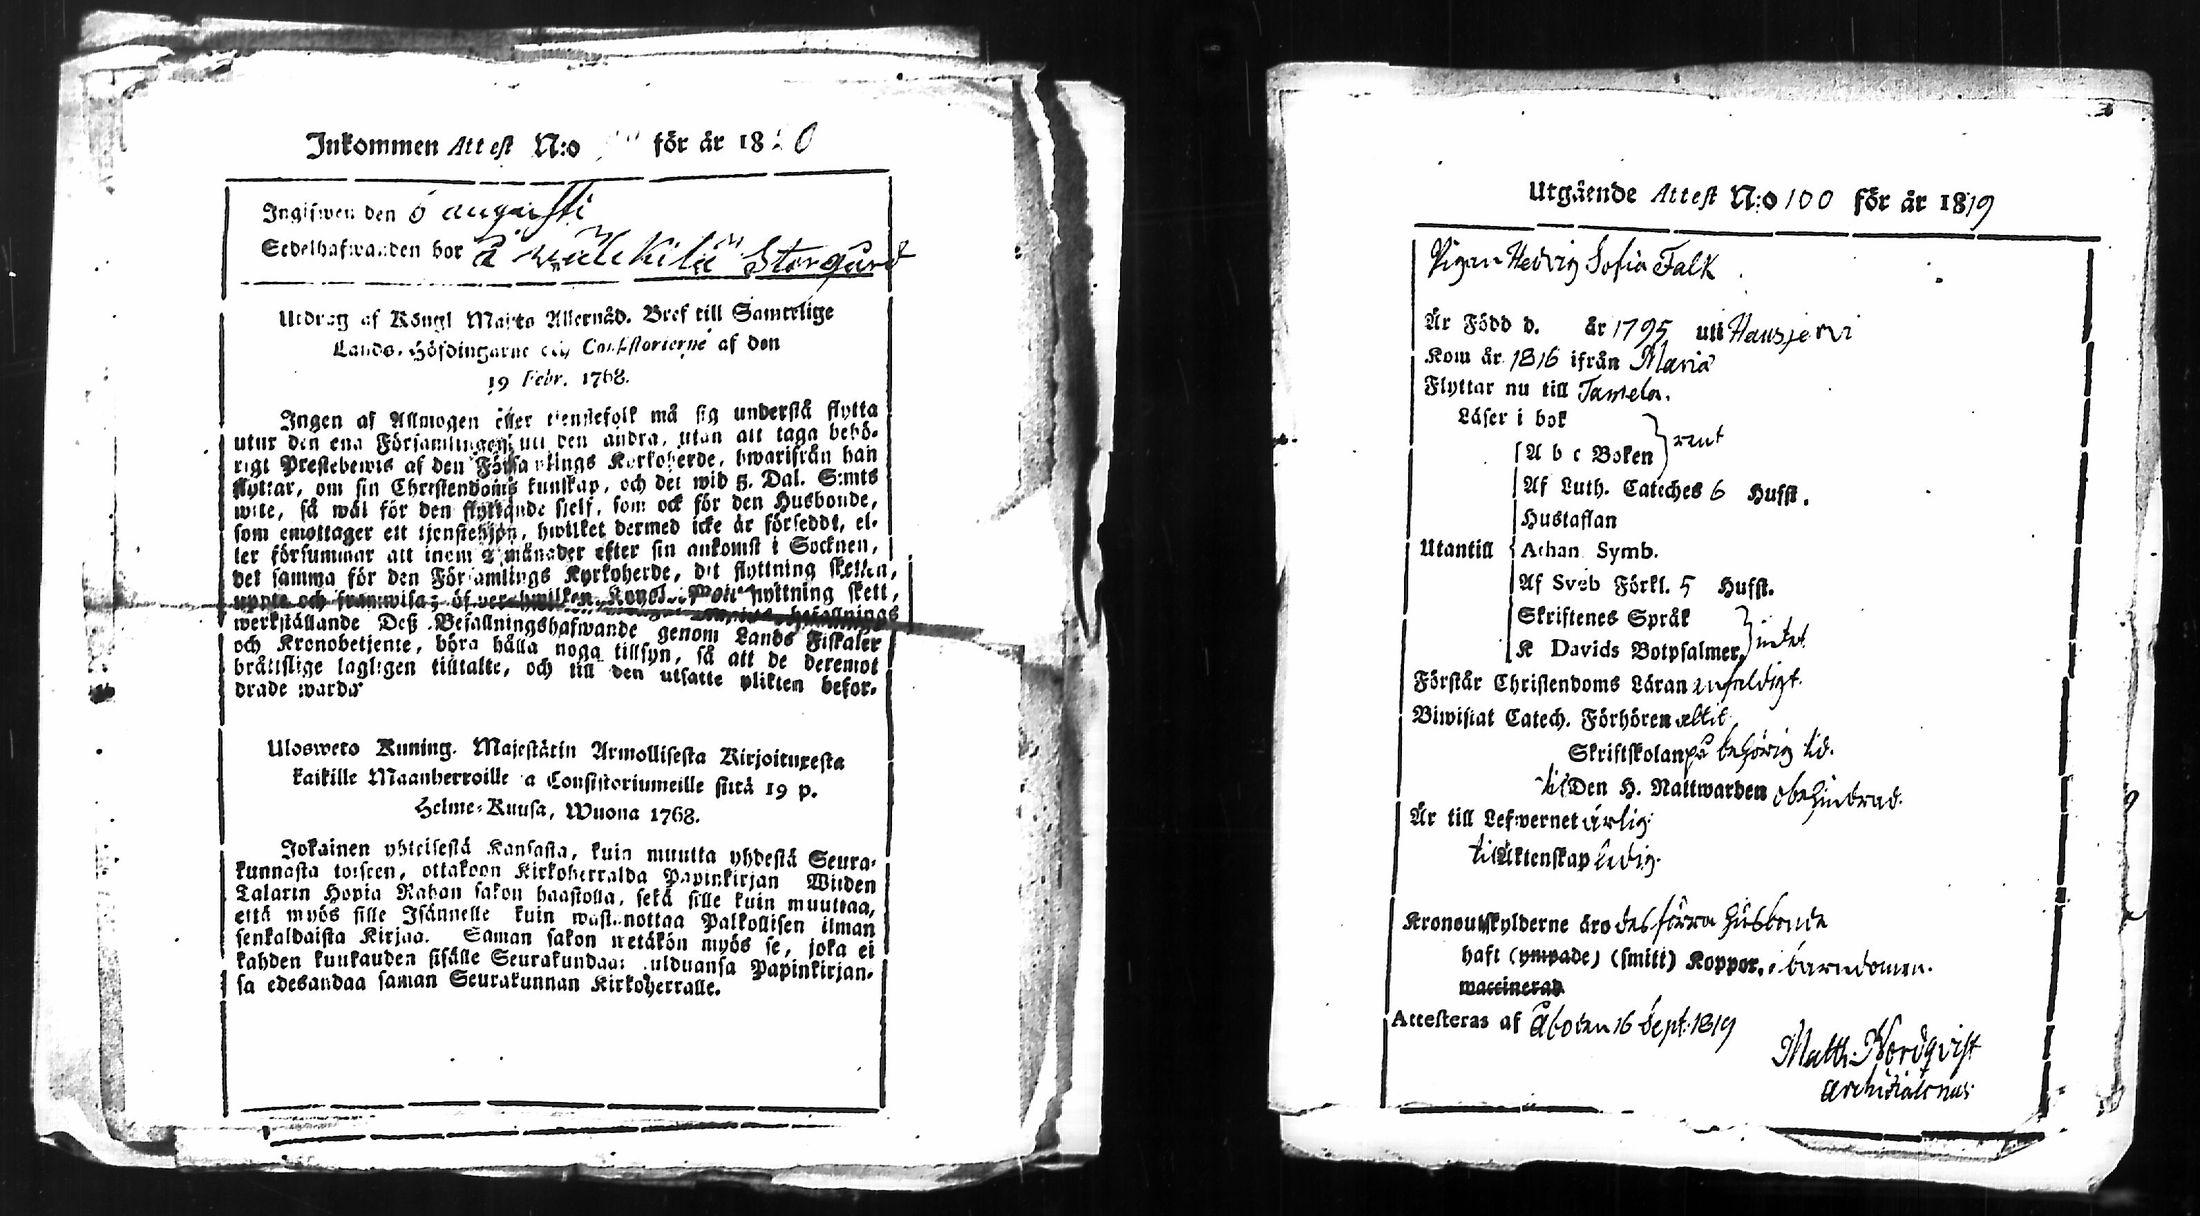 Inkommen Attest N:o för år 18 0
Ingifwen den 6 augusti
Sedelhafwanden bor å Storgård
Utdrag af Köngl Maj:ts Allernåd. Bref till Samtelige
Lands-Höfdingarne och Consistorierne af den
19 Febr. 1768.
Ingen af Allmogen eller tienstefolk må sig understå flytta
utur den ena Församlingen uti den andra, utan att taga behö-
rigt Prestebewis af den Församlings Kyrkoherde, hwarifrån han
flyttar, om sin Christendoms kunskap, och det wid 5. Dal. S:mts
wite, så wäl för den flyttande sielf, som ock för den Husbonde,
som emottager ett tjenstehjon, hwilket dermed icke är försedd, el-
ler försummar att inom 2 månader efter sin ankomst i Socknen,
det samma för den Församlings Kyrkoherde, dit flyttning skett,
werkställande Deß Befallningshafwande genom Lands Fiskaler
och Kronobetjente, böra hålla noga tillsyn, så att de deremot
bråttslige lagligen tiltalte, och till den utsatte plikten befor-
drade warda
Ulosweto Kuning. Majestätin Armollisesta Kirjoituxesta
kaikille Maanherroille ja Consistoriumeille siitä 19 p.
Helme-Kuusa, Wuona 1768.
Jokainen yhteisestä Kansasta, kuin muutta yhdestä Seura-
kunnasta toiseen, ottakoon Kirkoherralda Papinkirjan Wiiden
Talarin Hopia Rahan sakon haastolla, sekä sille kuin muuttaa,
että myös sille Isännelle kuin wastanottaa Palkollisen ilman
senkaldaista Kirjaa. Saman sakon wetäkön myös se, joka ei
kahden kuukauden sisälle Seurakundaan tulduansa Papinkirjan-
sa edesandaa saman Seurakunnan Kirkoherralle.
Utgående Attest N:o 100 för år 1819
Pigan Hedvig Sofia Falk
Är Född d. år 1795 uti Hausjervi
Kom år 1816 ifrån Maria
Flyttar nu till Tamela.
Läser i bok
A b c Boken } rent
Af Luth. Cateches 6 Hufst.
Hustaflan
Utantill Athan Symb.
Af Sveb Förkl. 5 Hufst.
Skriftenes Språk
K Davids Botpsalmer } intet
Förstår Christendoms Läran enfaldigt.
Biwistat Catech. Förhören alltid
Skriftskolan på behörig tid.
till Den H. Nattwarden obehindrad.
Är till Lefwernet ärlig
till Äktenskap ledig.
Kronoutskylderne äro des förra husbonde
haft (ympade) (smitt) Koppor, i barndomen.
waccinerad
Attesteras af Åbo den 16 Sept. 1819
Matth: Nordqvist
Archidiaconus